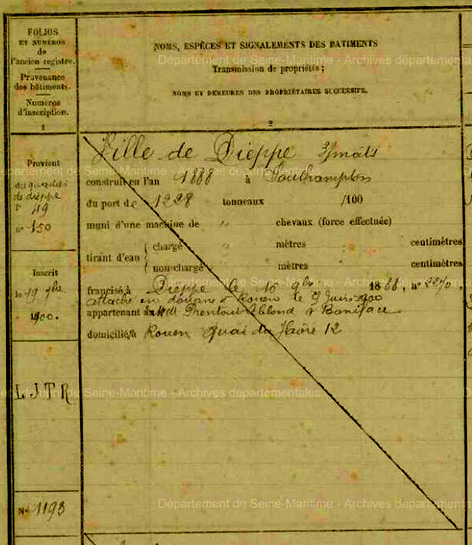 FOLIOS
ET NUMÉROS
de
l'ancien registre.
Provenance
des bâtiments.
Numéros
d'inscription.
1
NOMS, ESPÈCES ET SIGNALEMENTS DES BATIMENTS
Département de Seine-Maritime - Archives départementales
Transmission de propriétés;
NOMS ET DEMEURES DES PROPRIÉTAIRES SUCCESSIFS.
2
Provient
de dieppe
f° 49
n° 150
Ville de Dieppe 3/mâts
construit en l'an 1888 à Southampton
du port de 1228 tonneaux /100
muni d'une machine de " chevaux (force effectuée)
tirant d'eau
chargé " mètres centimètres
non chargé " mètres centimètres
Inscrit
le 19
1900.
francisé à Dieppe le 16 9bre 1888, n°
attaché en douane à Rouen le 9 1900
appartenant à MM Prentout Leblond & Boniface
domicilié à Rouen quai du Havre 12
LJTR
de Seine-Maritime - Archives départementales
N° 1193
Département de Seine-Maritime - Archives départementales